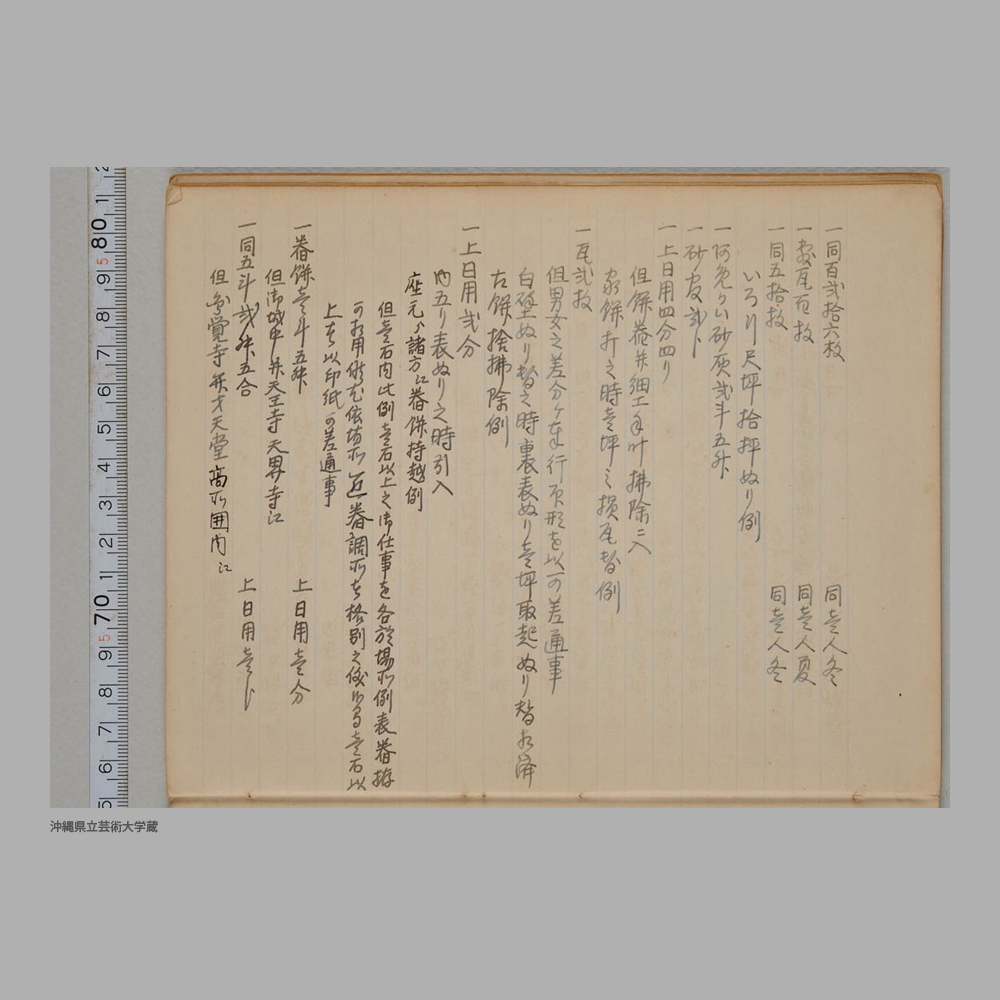 一同百弐拾六枚 同壱人冬
一敷瓦百枚 同壱人夏
一同五拾枚 同壱人冬
いろり尺坪拾坪ぬり例
砂灰弐斗五升
一砂灰弐升
一上日用四分四り
但餅捲并細工手叶拂除ニ入
餅打之時壱坪之損瓦替例
一瓦弐枚
但男女之差分ケ奉行頭形を以可差通事
白壁ぬり替之時裏表ぬり壱坪取起ぬり替相済
古餅捨拂除例
一上日用弐分
内五り表ぬり之時引入
座元より諸方江番餅持越例
但壱石内此例壱石以上之御仕事を各於場所例表番拵
可相用候尤依場所近番調所者格別之儀候間壱石以
上者以印紙可差通事
一番餅壱斗五舛 上日用壱分
但御城中并天王寺天界寺江
一同五斗弐舛五合 上日用壱分
但円覚寺并才天堂高所囲内江
沖縄県立芸術大学蔵